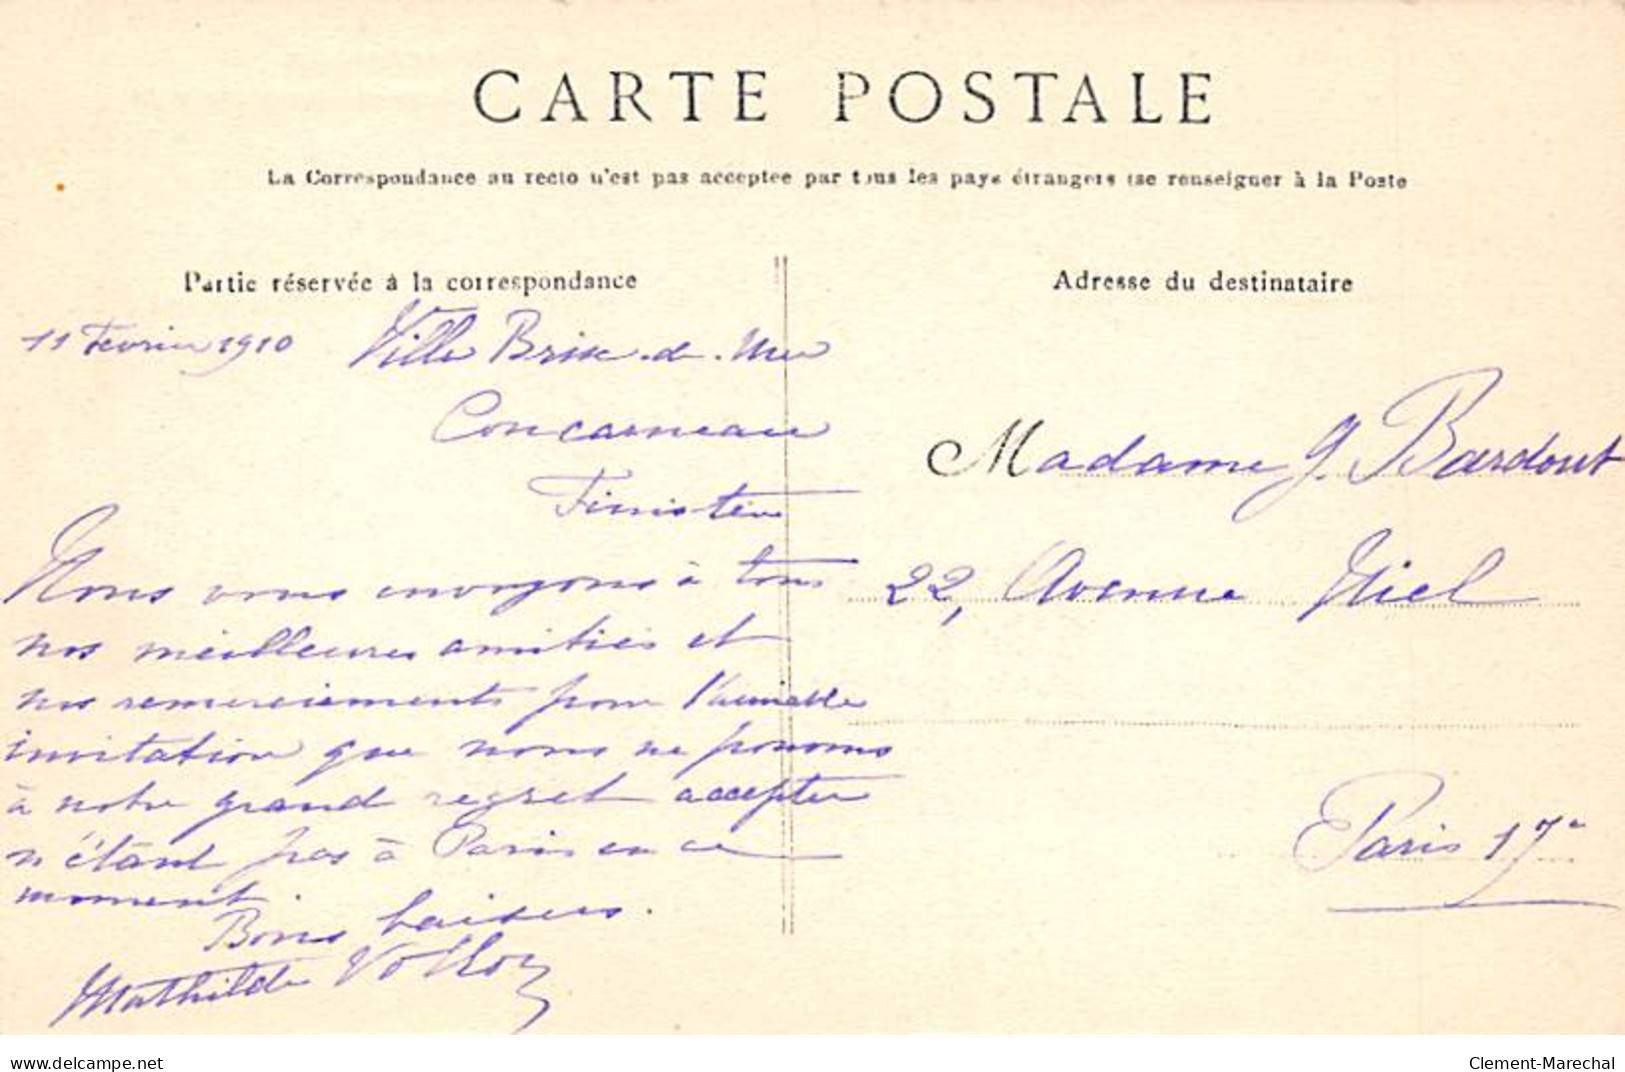 CARTE POSTALE
La Correspondance au recto n'est pas acceptée par tous les pays étrangers (se renseigner à la Poste
Partie réservée à la correspondance
Adresse du destinataire
11 Février 1910 Villa Brise-de-Mer
Concarneau
Finistère
Nous vous envoyons à tous
nos meilleures amitiés et
nos remerciements pour l'aimable
invitation que nous ne pouvons
à notre grand regret accepter
n'étant pas à Paris en ce
moment
Bons baisers.
Mathilde
Madame G. Bardout
22, Avenue Niel
Paris 17e
delcampe.net
Clement-Marechal